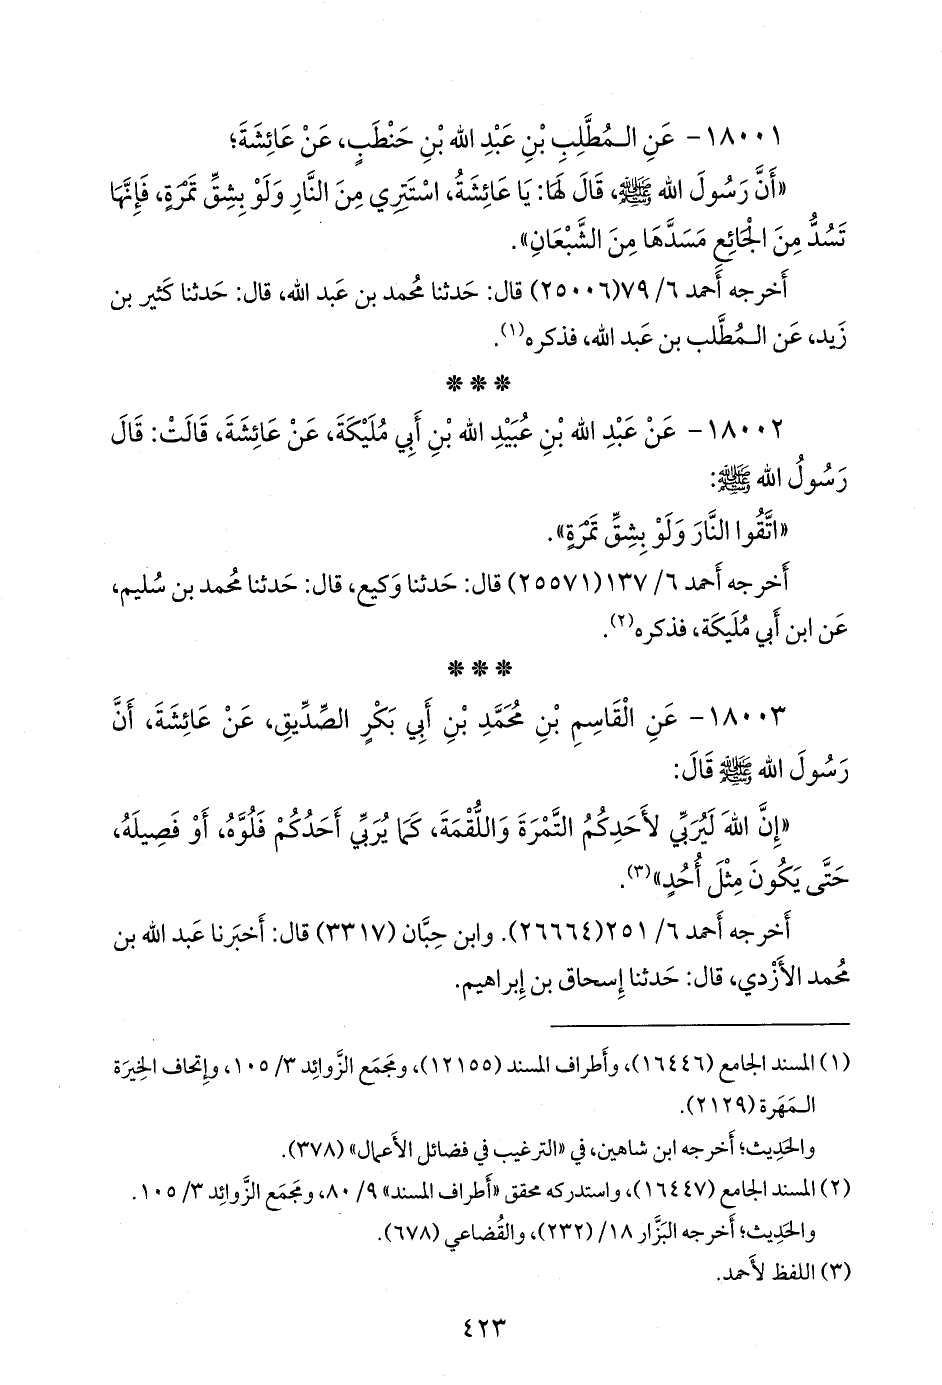 ١٨٠٠١- عَنِ الـمُطَّلِبِ بْنِ عَبْدِ الله بْنِ حَنْطَبٍ، عَنْ عَائِشَةَ؛
«أَنَّ رَسُولَ الله ﷺ، قَالَ لَهَا: يَا عَائِشَةُ، اسْتَتِرِي مِنَ النَّارِ وَلَوْ بِشِقِّ تَمْرَةٍ، فَإِنَّهَا
تَسُدُّ مِنَ الْجَائِعِ مَسَدَّهَا مِنَ الشَّبْعَانِ».
أَخرجه أَحمد ٦/ ٧٩(٢٥٠٠٦) قال: حَدثنا مُحمد بن عَبد الله، قال: حَدثنا كَثير بن
زَيد، عَن الـمُطَّلب بن عَبد الله، فذكره(١).
***
١٨٠٠٢- عَنْ عَبْدِ الله بْنِ عُبَيْدِ الله بْنِ أَبِي مُلَيْكَةَ، عَنْ عَائِشَةَ، قَالَتْ: قَالَ
رَسُولُ الله ﷺ:
«اتَّقُوا النَّارَ وَلَوْ بِشِقِّ تَمْرَةٍ».
أَخرجه أَحمد ٦/ ١٣٧(٢٥٥٧١) قال: حَدثنا وَكيع، قال: حَدثنا مُحمد بن سُليم،
عَن ابن أَبي مُلَيكَة، فذكره(٢).
***
١٨٠٠٣- عَنِ الْقَاسِمِ بْنِ مُحَمَّدِ بْنِ أَبِي بَكْرٍ الصِّدِّيقِ، عَنْ عَائِشَةَ، أَنَّ
رَسُولَ الله ﷺ قَالَ:
«إِنَّ اللهَ لَيُرَبِّي لأَحَدِكُمُ التَّمْرَةَ وَاللُّقْمَةَ، كَمَا يُرَبِّي أَحَدُكُمْ فَلُوَّهُ، أَوْ فَصِيلَهُ،
حَتَّى يَكُونَ مِثْلَ أُحُدٍ»(٣).
أَخرجه أَحمد ٦/ ٢٥١(٢٦٦٦٤). وابن حِبَّان (٣٣١٧) قال: أَخبَرنا عَبد الله بن
مُحمد الأَزْدي، قال: حَدثنا إِسحاق بن إِبراهيم.
(١) المسند الجامع (١٦٤٤٦)، وأَطراف المسند (١٢١٥٥)، ومَجمَع الزَّوائِد ٣/ ١٠٥، وإِتحاف الخِيرَة
الـمَهَرة (٢١٢٩).
والحَدِيث؛ أَخرجه ابن شاهين، في «الترغيب في فضائل الأَعمال» (٣٧٨).
(٢) المسند الجامع (١٦٤٤٧)، واستدركه محقق «أَطراف المسند» ٩/ ٨٠، ومَجمَع الزَّوائِد ٣/ ١٠٥.
والحَدِيث؛ أَخرجه البَزَّار ١٨/ (٢٣٢)، والقُضاعي (٦٧٨).
(٣) اللفظ لأَحمد.
٤٢٣